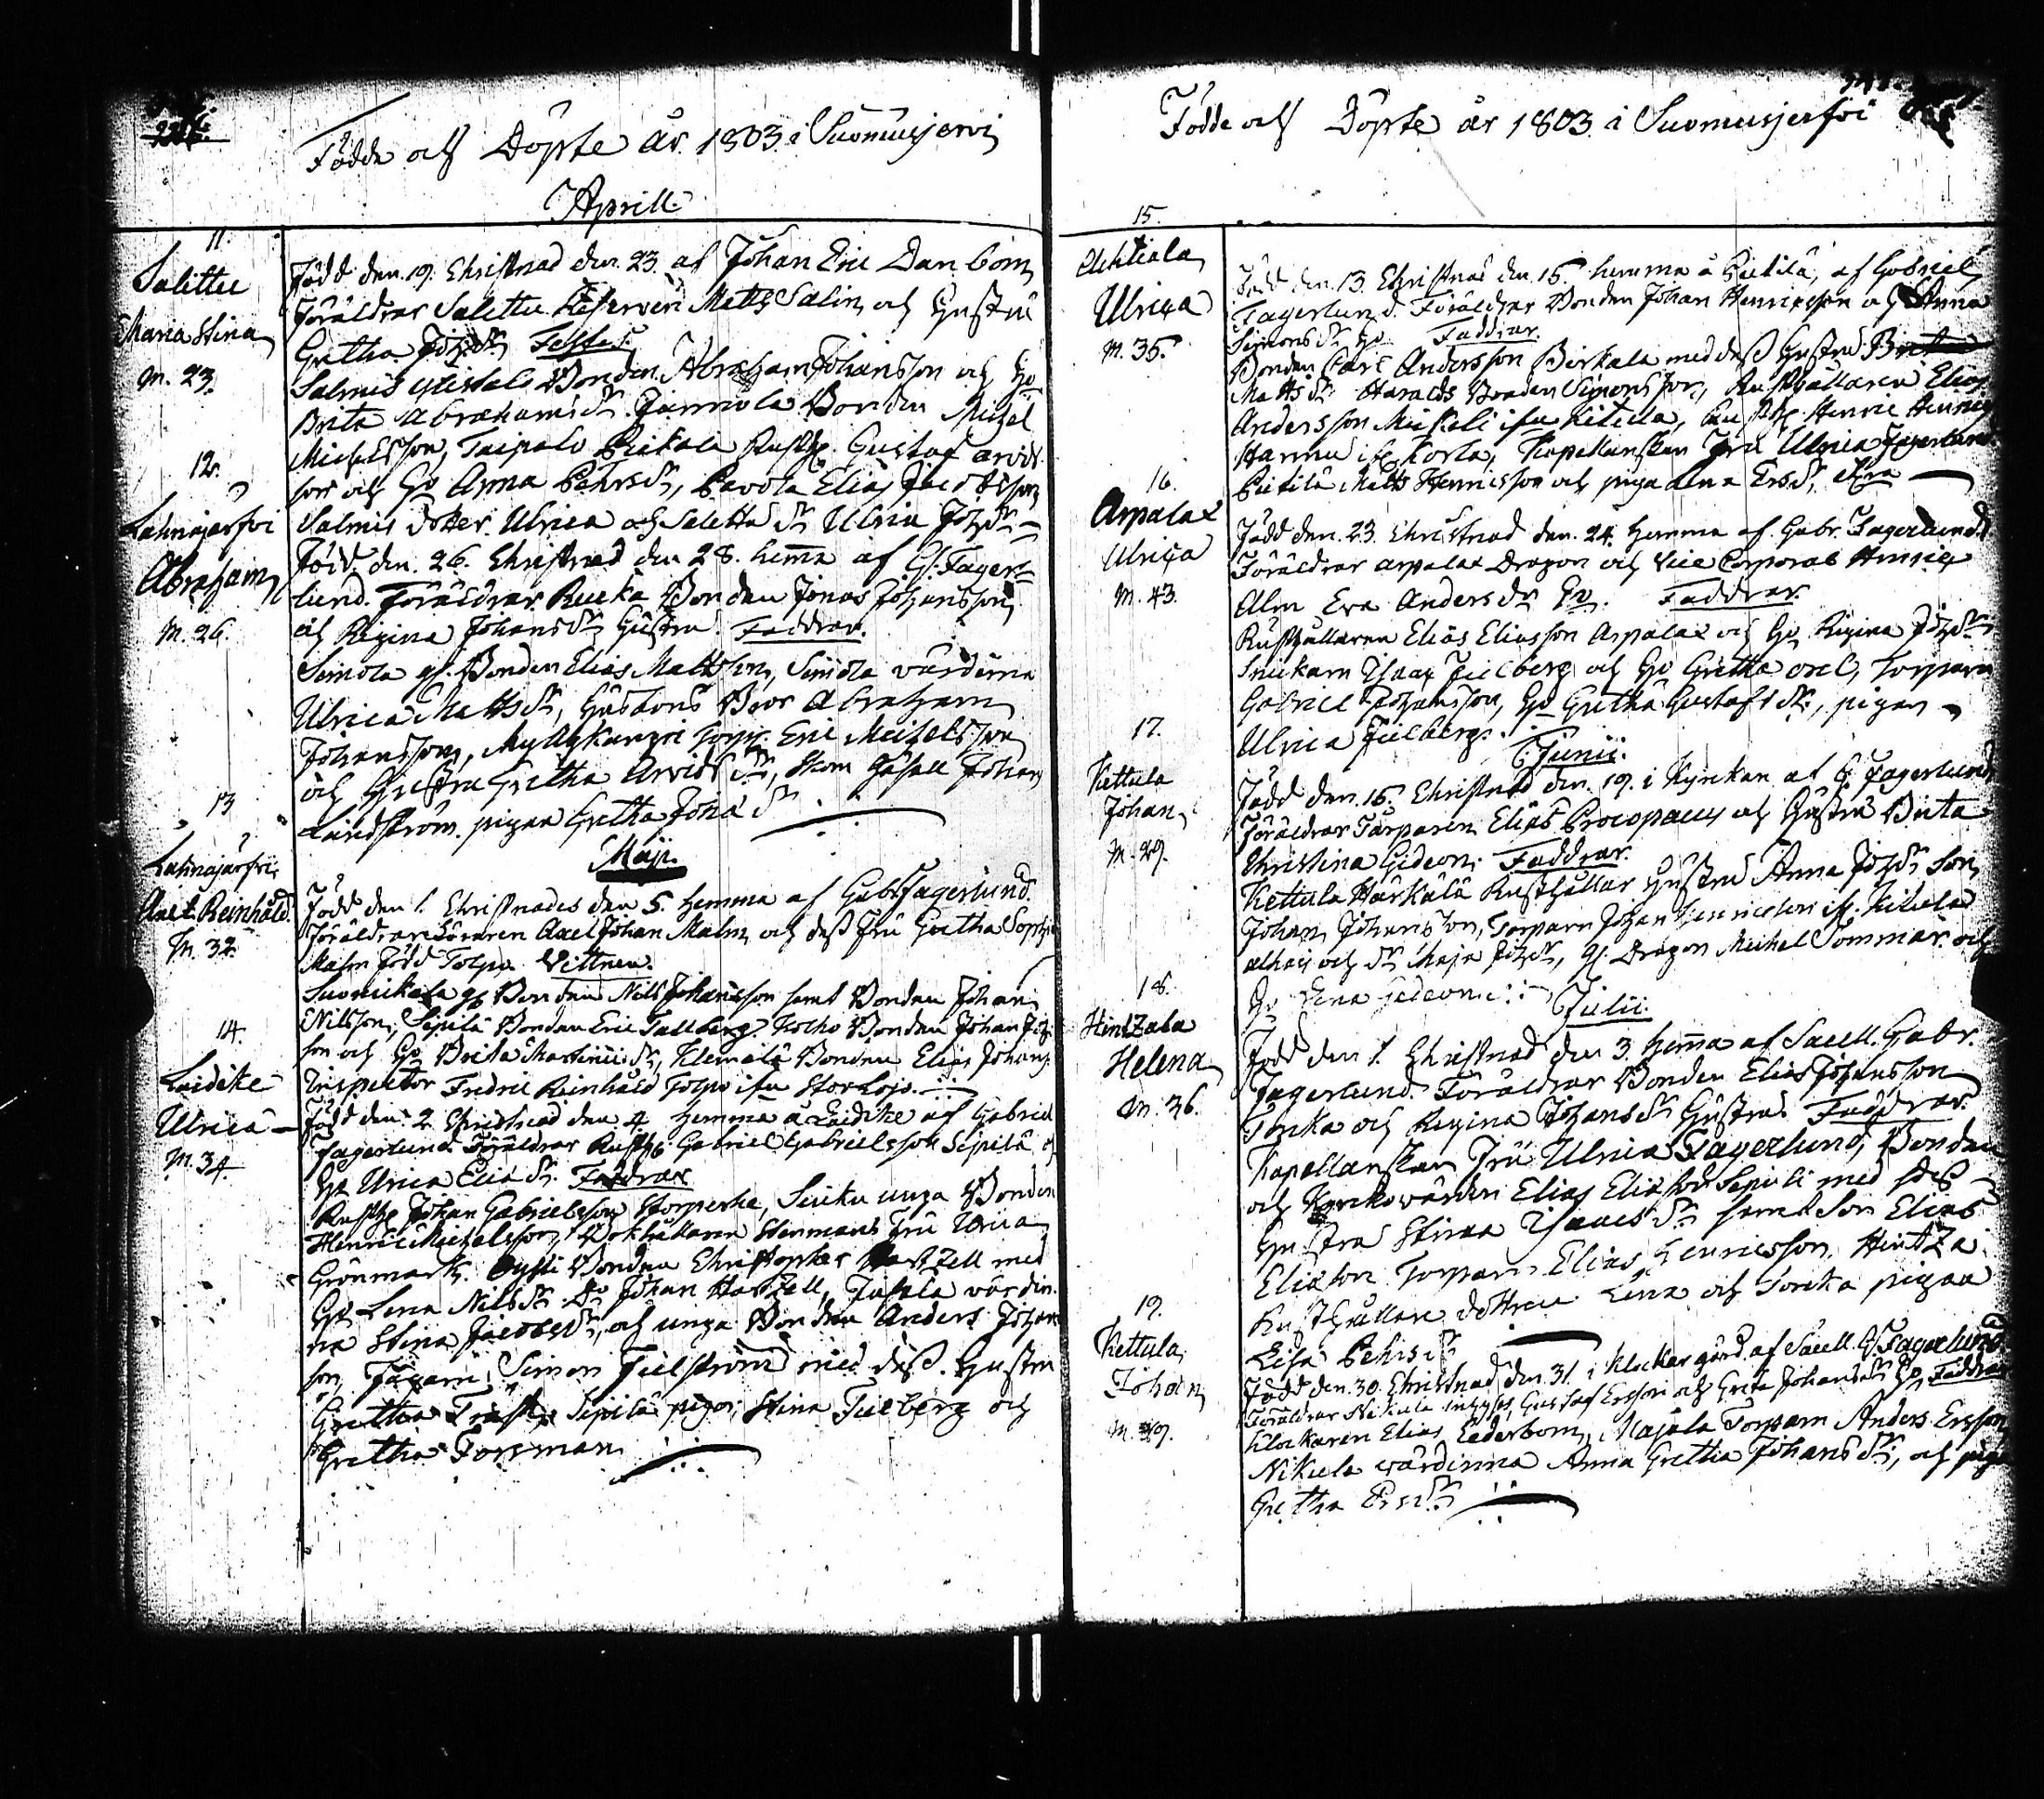 Födde och Döpte år 1803 i Suomusjervi
Aprill.
11.
Salittu
Maria Stina
M. 23.
Född den 19. Christnad den 23. af Johan Eric Danbom
Föräldrar Salittu Reserven Matts Salin och Hustru
Gretha Johsdr Testes.
Salmis Bonden Abraham Johansson och Ho
Brita Abrahamsdr Bonden Michel
Michelsson, Taipale Rusth. Gustaf Arvids
son och Ho Anna Pehrsdr, Pavola Elias Jacobsson
Salmis dotter Ulrica och Salittu dr Ulrica Johsdr
12.
Lahnajärfvi
Abraham
M. 26.
Född den 26. Christnad den 28. hema af G. Fager-
lund. Föräldrar Bonden Jonas Johansson
och Regina Johansdr Hustru. Faddrar.
Simola gl. Bonden Elias Mattsson, Simola värdinna
Ulrica Mattsdr, Husbons Bror Abraham
Johansson, Myllykangri Torp. Eric Michelsson
och Hustru Gretha Arvidsdr, Skom Gesäll Johan
Lindström. pigan Gretha Jonædr
Maji.
13
Lahnajärfvi
Axel Reinhold.
M. 32.
Född den 1. Christnades den 5. hemma af Gabr Fagerlund.
Föräldrar Axel Johan Malm och dess Fru Gretha Sophia
Malm född Tolpo. Vittnen.
gl Bonden Nils Johansson samt Bonden Johan
Nilsson, Sipilä Bonden Eric Tallberg. Kolho Bonden Johan Joh.
son och Ho Brita Martinii dr, Klemelä Bonden Elias Johans.
Inspektor Fredric Reinhold Tolpo ifrn Storlojo.
14.
Laidike
Ulrica
M. 34.
Född den 2. Christnad den 4. hemma å Laidike af Gabriel
Fagerlund. Föräldrar Rusth. Gabriel Gabrielsson Sipilä och
Ho Ulrica Eliædr. Faddrar
Rusth Johan Gabrielsson Storperke, unga Bonden
Henric Michelsson, Bokhållaren Stenmans Fru Ulrica
Grönmark. Bonden Christopher Hartzell med
Ho Lena Nilsdr Do Johan Hartzell, värdin-
na Stina Jacobsdr, och unga Bonden Anders Johan
son, Simon Fielström med dess Hustru
Gretha Sipilä pigor, Stina Fielberg och
Gretha Forsman
Födde och Döpte år 1803 i Suomusjerfvi
15.
Ahtiala
Ulrica
M. 35.
Född den 13. Christnad den 15. hemma å Pietilä, af Gabriel
Fagerlund. Föräldrar Bonden Johan Henricsson och Anna
Simonsdr Ho Faddrar.
Bonden Carl Andersson Pirkala med dess Hustru
Mattsdr Haralds Bonden Simonsson, Rusthållaren Elias
Andersson Mickeli ifrn Kitula, Rusth. Henric Henrics
Hannu ifr Korla, Kapellanskan Fru Ulrica Fagerlund
Pietilä Matts Henricsson och piga Lena Ersdr,
16.
Arpalax
Ulrica
M. 43.
Född den 23. Christnad den 24. hemma af Gabr. Fagerlund.
Föräldrar Arpalax Dragon och Vice Corporal Henric
Alm Eva Andersdr Ho. Faddrar.
Rusthållaren Elias Eliasson Arpalax och Ho Regina Johsdr
Snickarn Isaac Fielberg och Ho Gretha Torparn
Gabriel Johansson, Ho Gretha Gustafsdr, pigan
Ulrica Fielberg.
Junii.
17.
Kettula
Johan
M. 29.
Född den 15. Christnad den 19. i Kyrckan af G. Fagerlund
Föräldrar Torparen Elias Procopaeus och Hustru Brita
Christina Gideon. Faddrar.
Kettula Härkälä Rusthållar Hustru Anna Johsdr Son
Johan Johansson, Torparn Johan Henricsson if. Kitula
och dr Maja Johsdr, gl. Dragon Michel Sommar och
Ho Lena Gideon
Julii.
18.
Hintzala
Helena
M. 36.
Född den 1. Christnad den 3. hema af Sacell. Gabr.
Fagerlund. Föräldrar Bonden Elias Johansson
och Regina Johansdr Hustru Faddrar.
Kapellanskan Fru Ulrica Fagerlund, Bonden
och Kyrkovärden Elias Eliasson med dess
Hustru Stina Isaacsdr samt Son Elias
Eliasson Torparn Elias Henricsson, Hintza
Rusthållare dottren Lena och pigan
Lisa Pehrsdr
19.
Kettula
Johan
M. 29.
Född den 30. Christnad den 31. i Klockar gård. af Sacell. G Fagerlund
Föräldrar Nikula Gustaf Ersson och Greta Johansdr Ho Faddrar
Klockaren Elias Cederbom, Majala Torparn Anders Ersson
Nikula värdinna Anna Gretha Johansdr, och piga
Gretha Ersdr